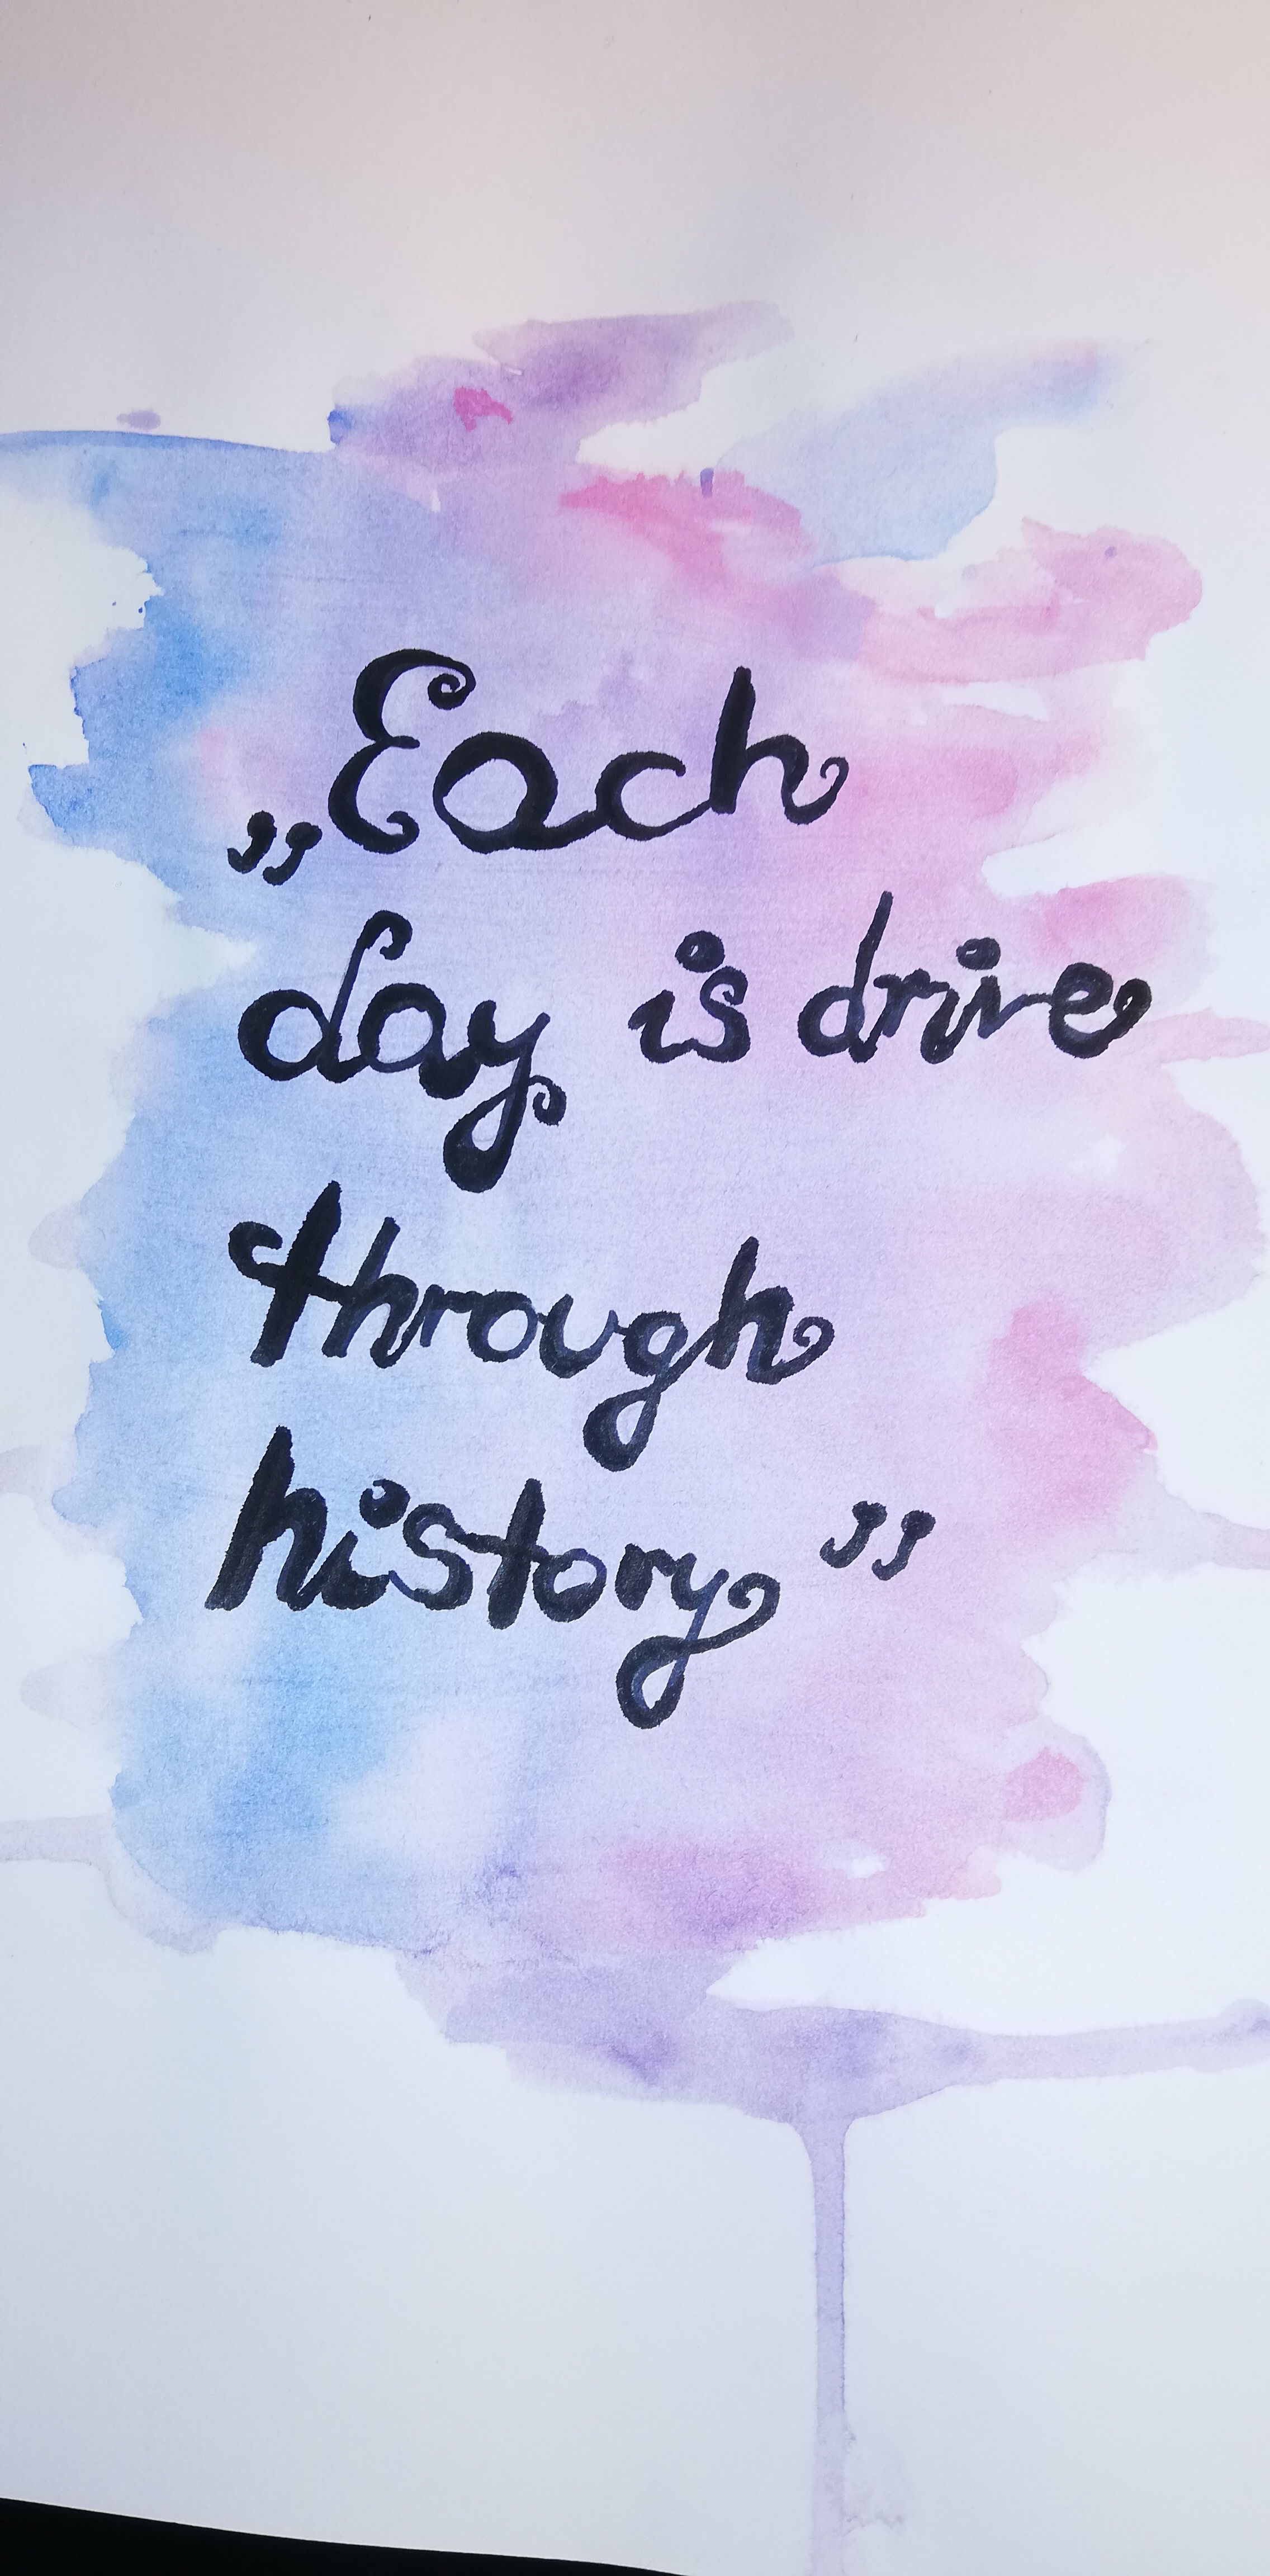 „Each
day is drive
through
history”